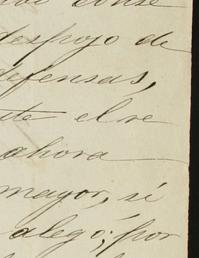 despojo de
defensas,
te el re
ahora
mayor, si
alegó; por